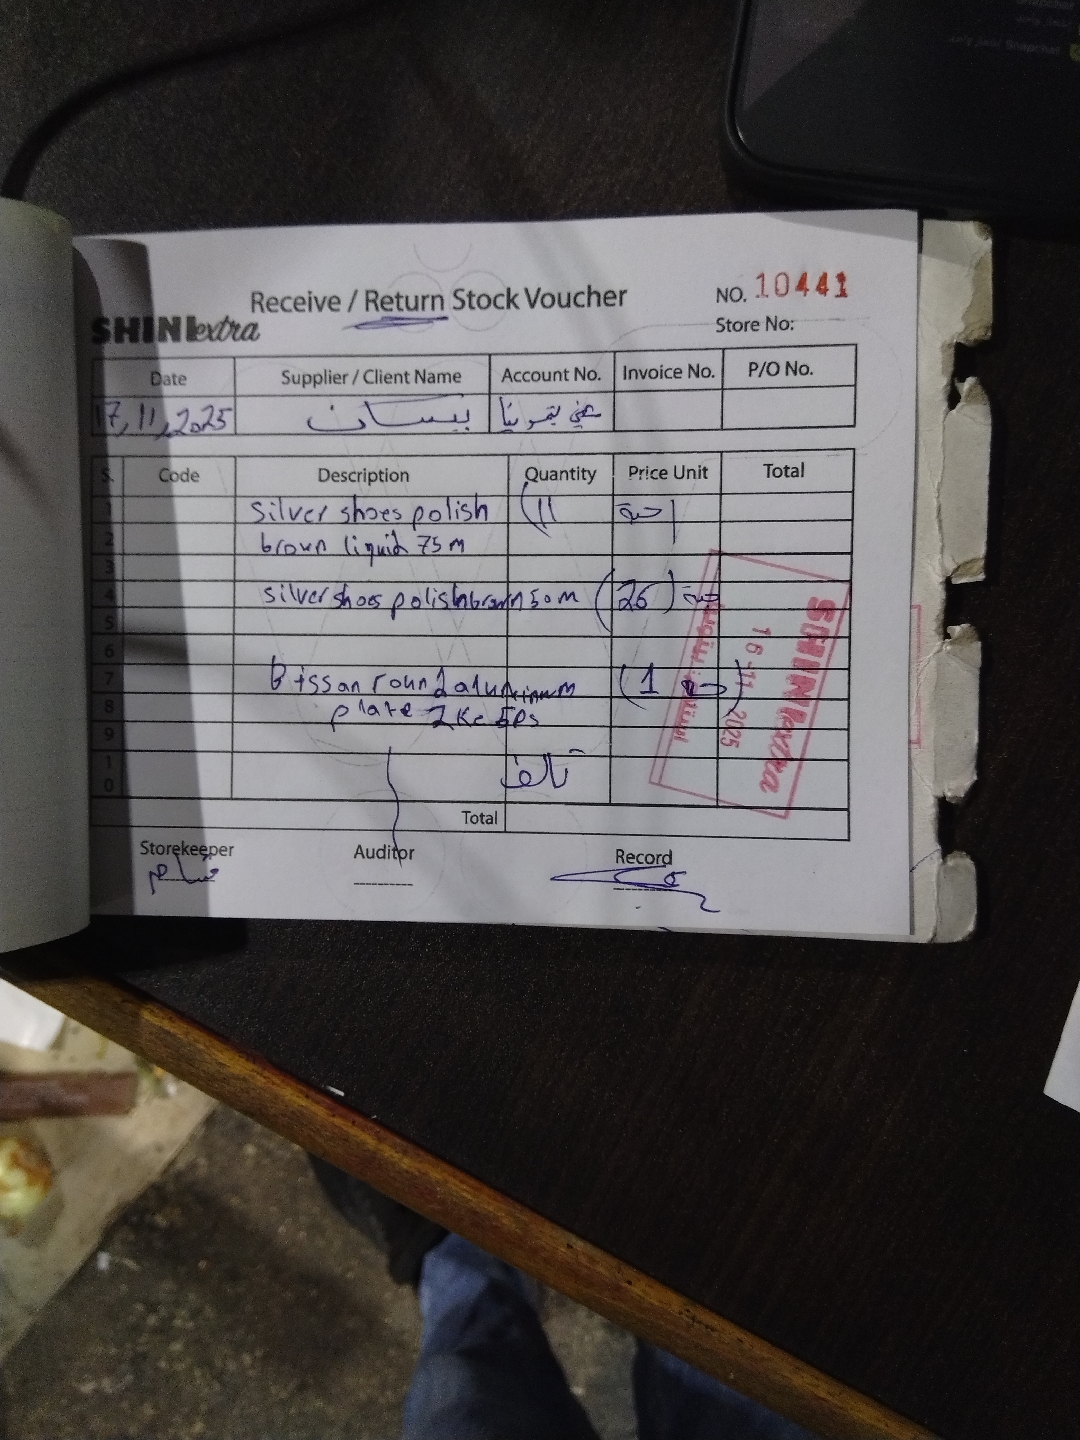 Receive / Return Stock Voucher
NO. 10441
SHINI extra
Store No:
Date Supplier / Client Name Account No. Invoice No. P/O No.
17,11,2025 بيسان
S. Code Description Quantity Price Unit Total
1 silver shoes polish (11 حبة
2 brown liquid 75m
3
4 silver shoes polish brown 50m (26) حبة
5
6
7 Bissan round aluminum (1 حبة)
8 plate 2Kc 5Ps
9
10 تالف
Total
SHINI extra
16-11 2025
Storekeeper Auditor Record